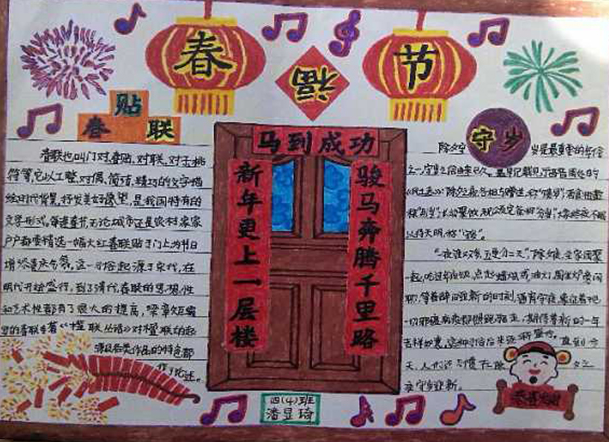 春
节
福
贴
春联
守岁
马到成功
骏马奔腾千里路
新年更上一层楼
春联也叫门对、春贴、对联、对子、桃
符等,它以工整、对偶、简洁、精巧的文字描
绘时代背景,抒发美好愿望,是我国特有的
文学形式。每逢春节,无论城市还是农村,家家
户户都要精选一幅大红春联贴于门上,为节日
增加喜庆气氛。这一习俗起源于宋代,在
明代开始盛行,到了清代,春联的思想性
和艺术性都有了很大的提高,梁章钜编
写的春联专著《楹联丛话》对楹联的起
源及各类作品的特色都
作了论述。
除夕守
岁是最重要的年俗
待天明,称“
“一夜连双岁,五更分二天”除夕夜,全家团聚
一起,吃过年夜饭,点起蜡烛或油灯,围坐炉旁闲
聊,等着辞旧迎新的时刻,通宵守夜,象征着把
一切邪瘟病疫都照跑驱走,期待着新的一年
吉祥如意。
今,人们还习惯在除
夕之
夜守岁迎新。
恭喜发财
四(4)班
潘昱琦